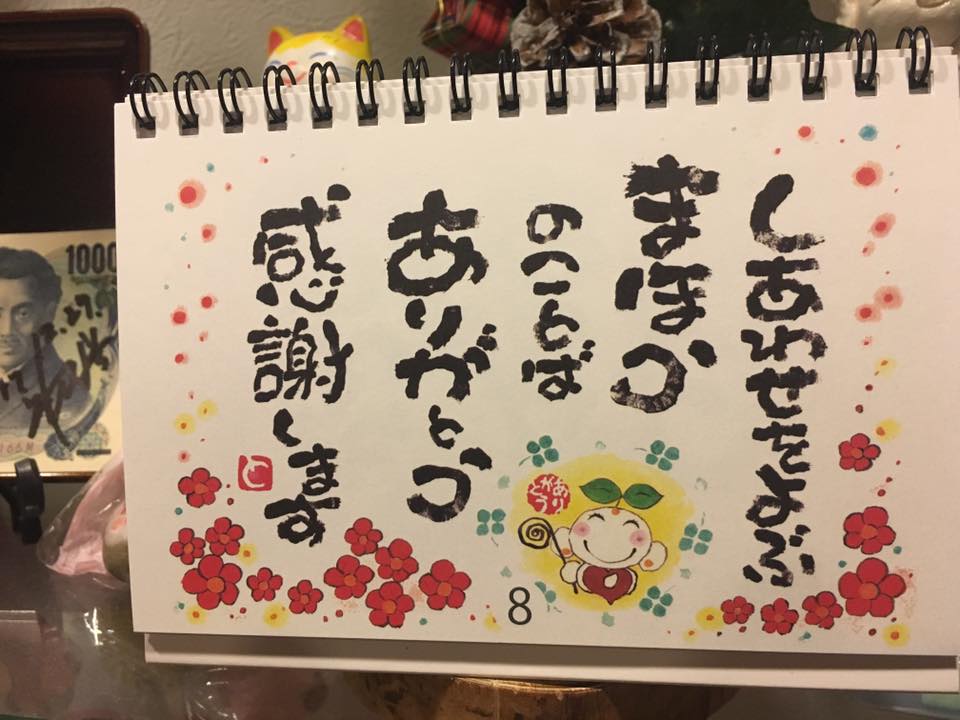 しあわせをよぶ
まほう
のことば
ありがとう
感謝します
ありがとう
8
1000